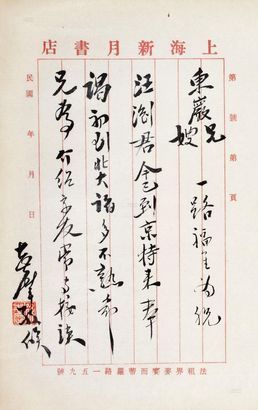 上海新月書店
第 號 第 頁
東巖兄嫂 一路福星為祝
汪君今已到京特來奉
謁初到北大諸多不熟
兄為介紹京友常與接談
志摩敬候
民國 年 月 日
法租界麥賽而蒂羅路一五九號